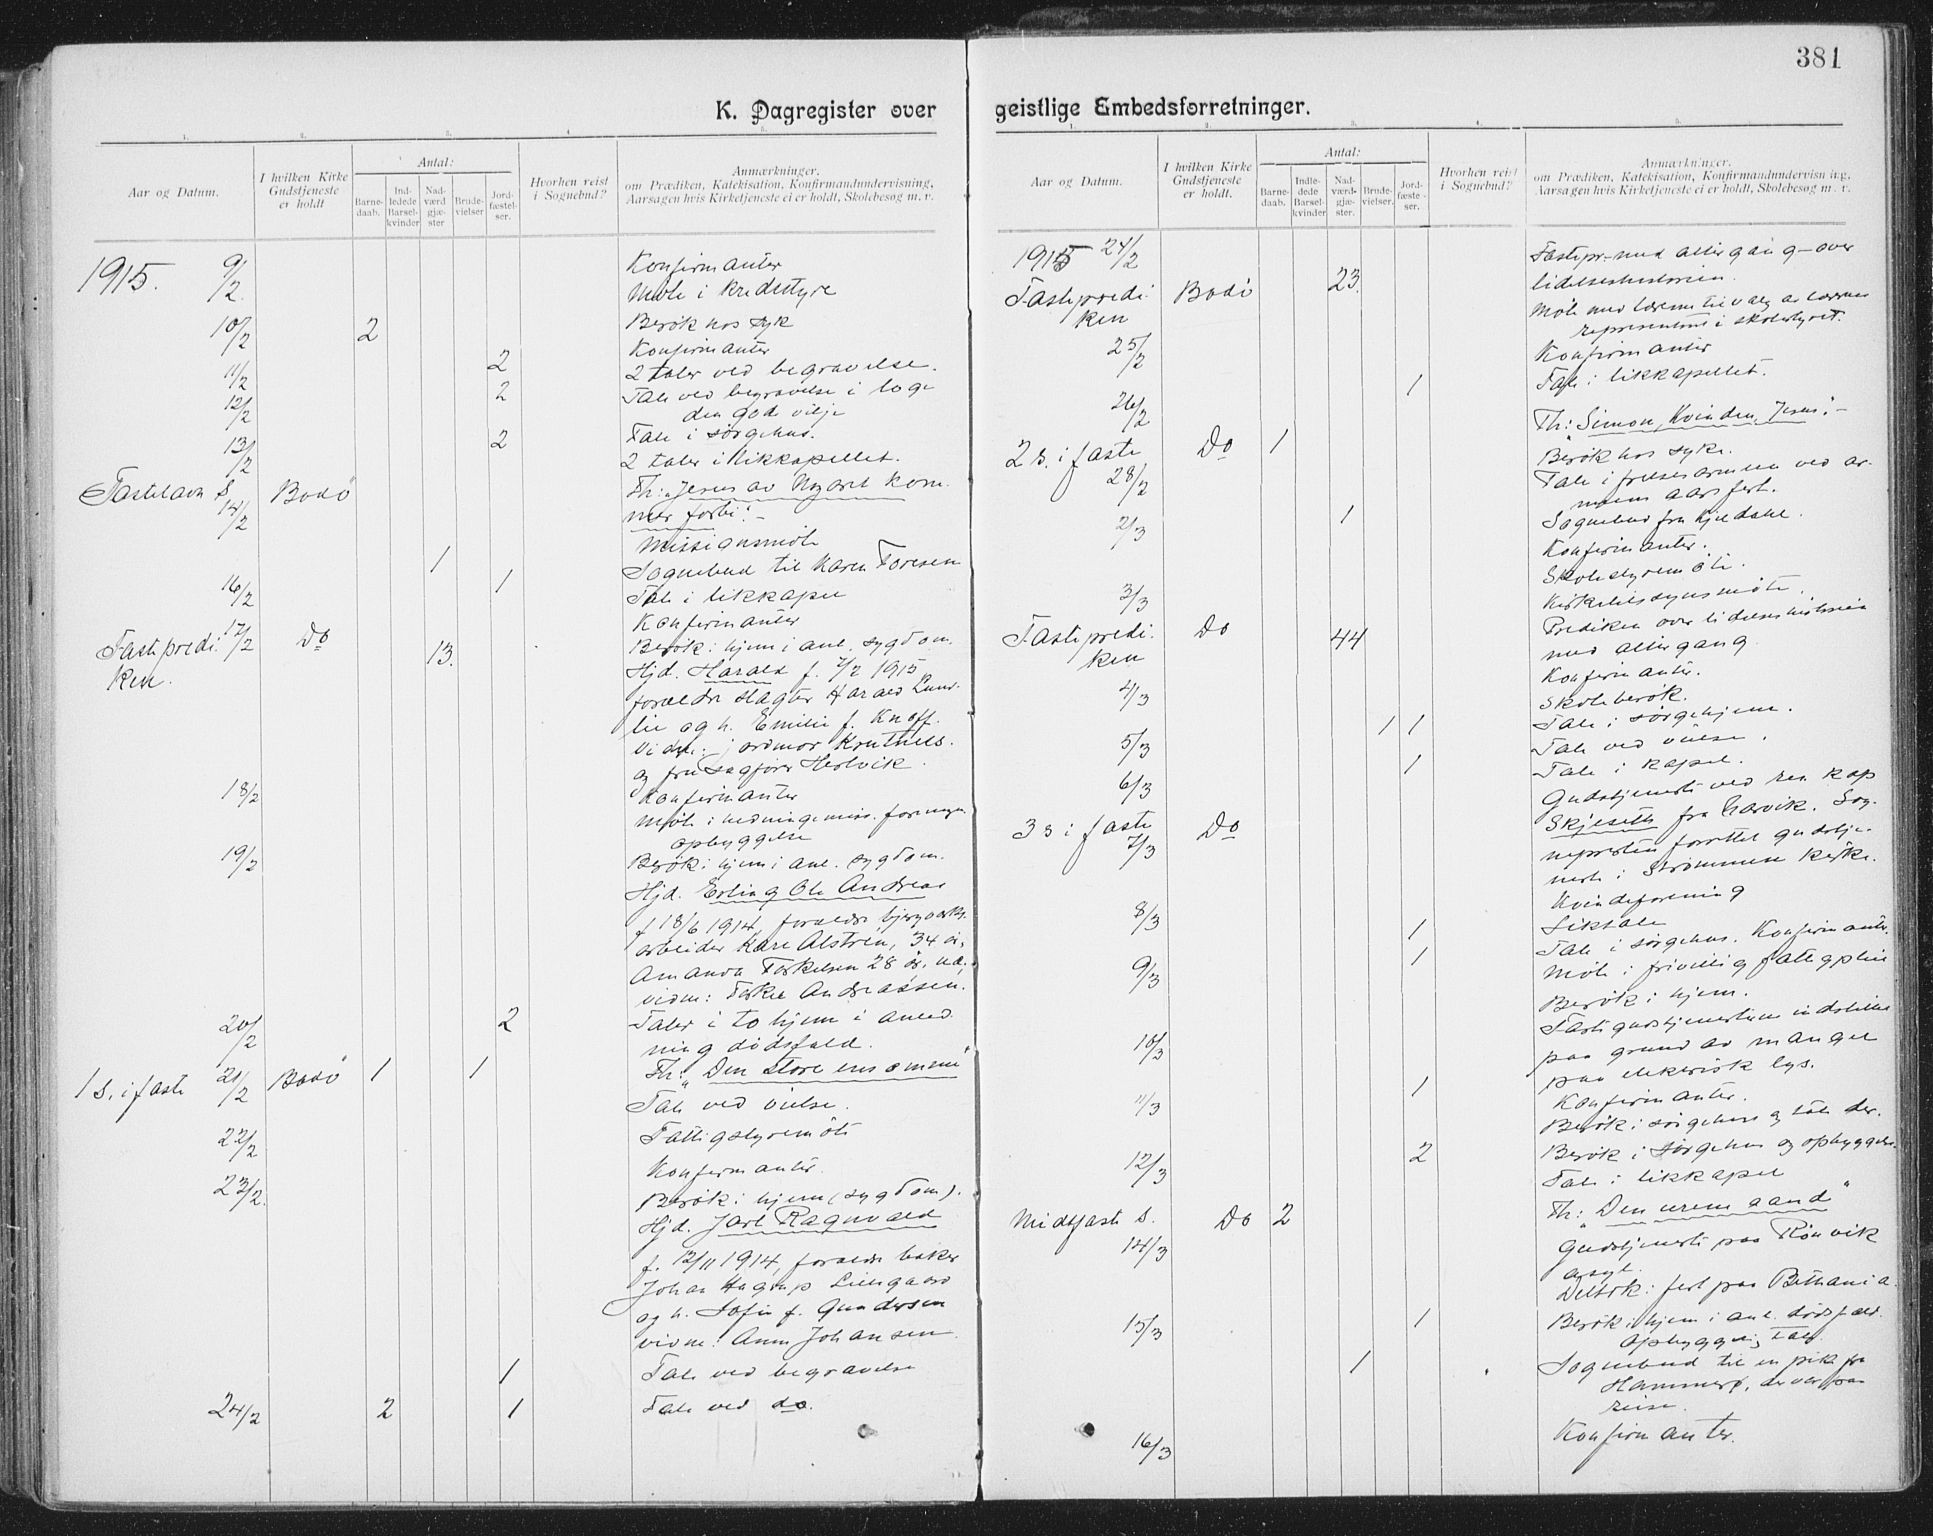 381
K. Dagregister over
1. 2. 3. 4. 5.
Aar og Datum.
I hvilken Kirke Gudstjeneste er holdt
Antal:
Barnedaab.
Indledede Barselkvinder
Nadværdgjæster
Brudevielser
Jordfæstelser.
Hvorhen reist i Sognebud?
Anmærkninger.
om Prædiken, Katekisation, Konfirmandundervisning,
Aarsagen hvis Kirketjeneste ei er holdt, Skolebesøg m. v.
1915. 9/2 Konfirmanter
Møte i kredsstyre
10/2 2 Besøk hos syk
Konfirmanter
11/2 2 2 taler ved begravelse.
12/2 2 Tale ved begravelse i loge
den gode vilje
13/2 2 Tale i sørgehus.
2 taler i likkapellet.
Fastelavn S. 14/2 Bodø Th: "Jesus av Nasaret kom-
mer forbi".-
Missionsmøte
1 Sognebud til Karen Toresen
16/2 1 Tale i likkapel
Konfirmanter
Fastepredi- 17/2 Do 13. Besøk i hjem i anl. sygdom.
ken. Hjd. Harald f. 7/2 1915
forældre slagter Harald Lund-
lie og h. Emilie f. Knoff.
vidne: jordmor Knuthels.
og fru sagfører Hertvik.
18/2 Konfirmanter
Møte i hedningemiss. forening
opbyggelse
19/2 Besøk i hjem i anl. sygdom.
Hjd. Erling Ole Andreas
f 18/6 1914, forældre bjergverks-
arbeider Kare Alstrin, 34 år,
Amanda Torkelsen 28 år.
vidne: Torkel Andreassen.
20/2 2 Taler i to hjem i anled-
ning dødsfald.
1 S. i faste 21/2 Bodø 1 1 Th: "Den store ensomme"
Tale ved vielse.
22/2 Fattigstyremøte
Konfirmanter.
23/2. Besøk i hjem (sygdom).
Hjd. Jarl Ragnvald
f. 12/11 1914, forældre baker
Johan Hagrup Liengaard
og h. Sofie f. Gundersen
vidne: Anna Johansen.
1 Tale ved begravelse
24/2 2 1 Tale ved do.
geistlige Embedsforretninger.
1. 2. 3. 4. 5.
Aar og Datum.
I hvilken Kirke Gudstjeneste er holdt.
Antal:
Barnedaab.
Indledede Barselkvinder
Nadværdgjæster.
Brudevielser.
Jordfæstelser.
Hvorhen reist i Sognebud?
Anmærkninger.
om Prædiken, Katekisation, Konfirmandundervisning,
Aarsagen hvis Kirketjeneste ei er holdt, Skolebesøg m. v.
1915 24/2 Fastepr. med altergang over
Fastepredi- Bodø 23. lidelseshistorien.
ken Møte med lærerne til valg av lærernes
representant i skolestyret.
25/2 Konfirmanter
1 Tale i likkapellet.
26/2
Th: "Simon, Kvinden, Jesus".-
2 s. i faste 28/2 Do 1 Besøk hos syke.
Tale i frelsesarmeen ved ar-
meens aarsfest.
2/3 1 Sognebud fra Kjeldahl.
Konfirmanter.
Skolestyremøte.
3/3 Kirketilsynsmøte.
Fastepredi- Do 44 Prediken over lidelseshistorien
ken med altergang
Konfirmanter.
4/3 Skolebesøk.
1 1 Tale i sørgehjem.
5/3 Tale ved vielse.
1 Tale i kapel.
6/3 Gudstjeneste ved res. kap
3 s i faste 7/3 Do Skjeseth fra Narvik. Sog-
nepresten forrettet gudstje-
neste i Strømmen kirke.
Kvindeforening
8/3 Liktale
1 Tale i sørgehus. Konfirmanter.
9/3 1 Møte i frivillig fattigpleie
Besøk i hjem.
Fastegudstjenesten indstillet
10/3 paa grund av mangel
paa elektrisk lys.
11/3 1 Konfirmanter.
Besøk i sørgehus og tale der.
12/3 2 Besøk i sørgehus og opbyggelse.
Tale i likkapel
Midfaste S. 14/3 Do 2 Th: "Den urene aand"
Gudstjeneste paa Rønvik
asyl.
Deltok i fest paa Bethania.
15/3 1 Besøk i hjem i anl. dødsfald.
Opbyggelig tale.
1 Sognebud til en pike fra
Hammerø, der var paa
reise.
16/3 Konfirmanter.